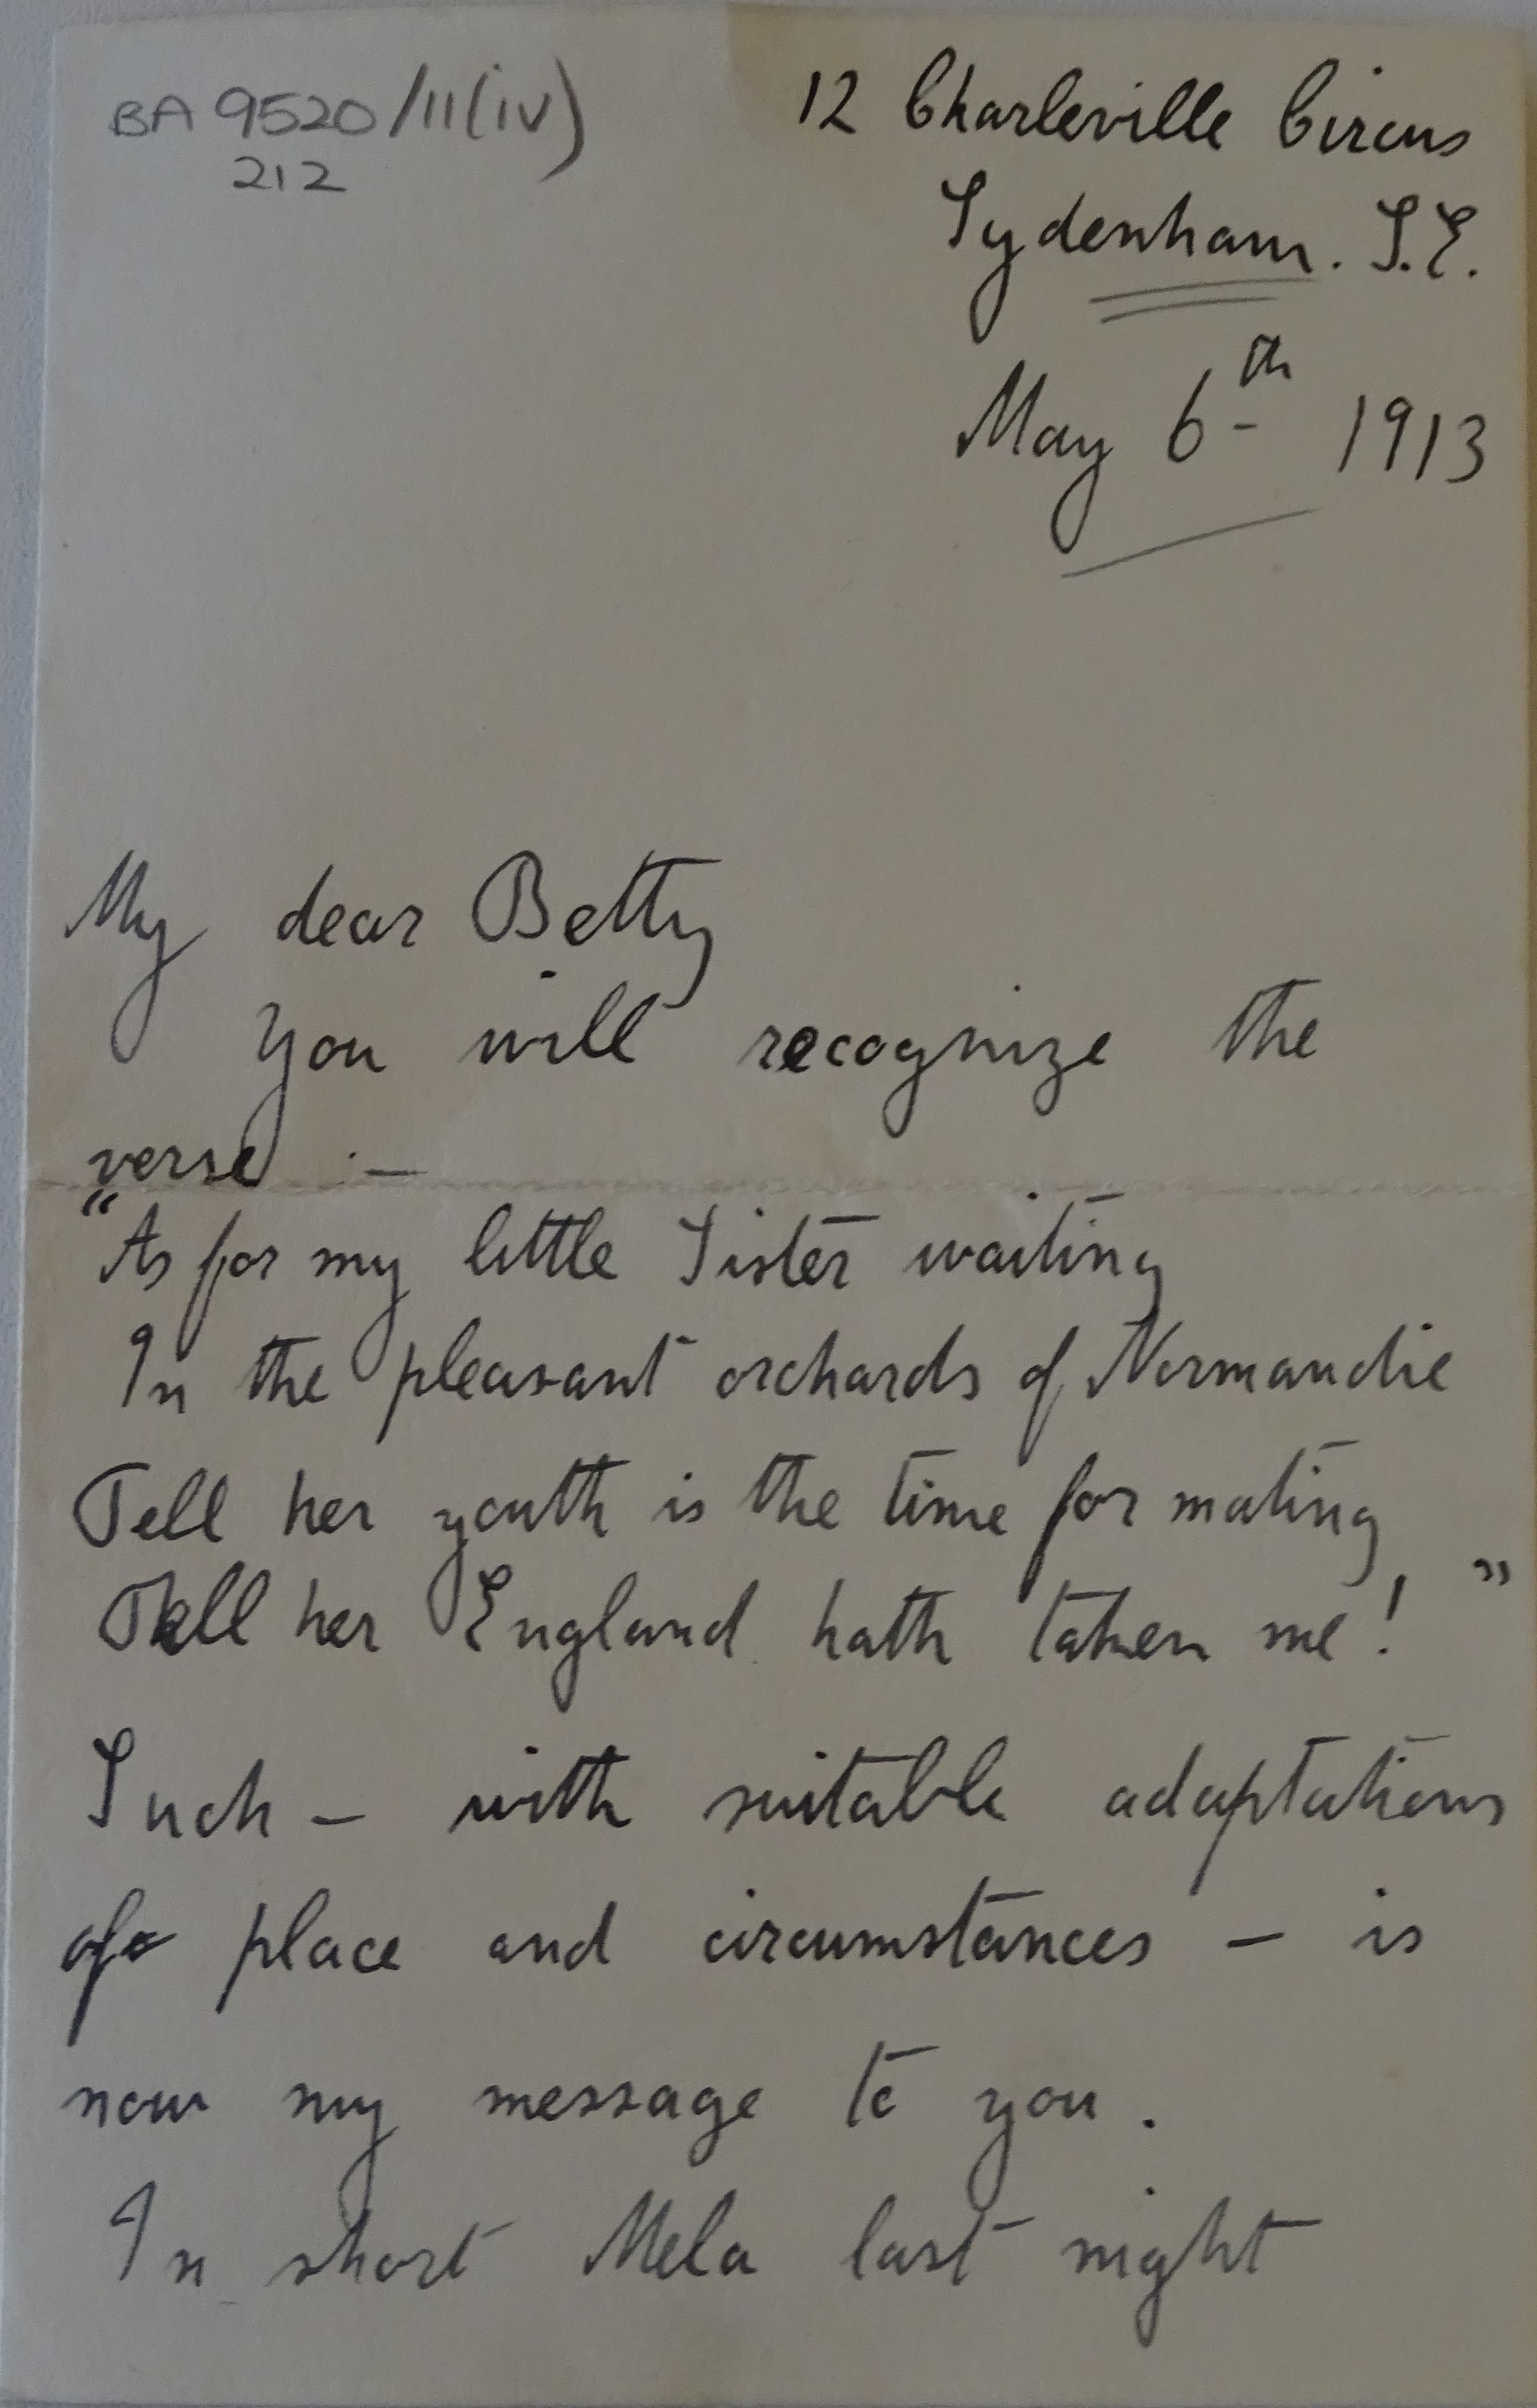 BA 9520/11(iv)
212
12 Charleville Circus
Sydenham. S.E.
May 6th 1913
My dear Betty
You will recognize the
verse :—
"As for my little Sister waiting
In the pleasant orchards of Normandie
Tell her youth is the time for mating
Tell her England hath taken me!"
Such — with suitable adaptations
of place and circumstances — is
now my message to you.
In short Mela last night